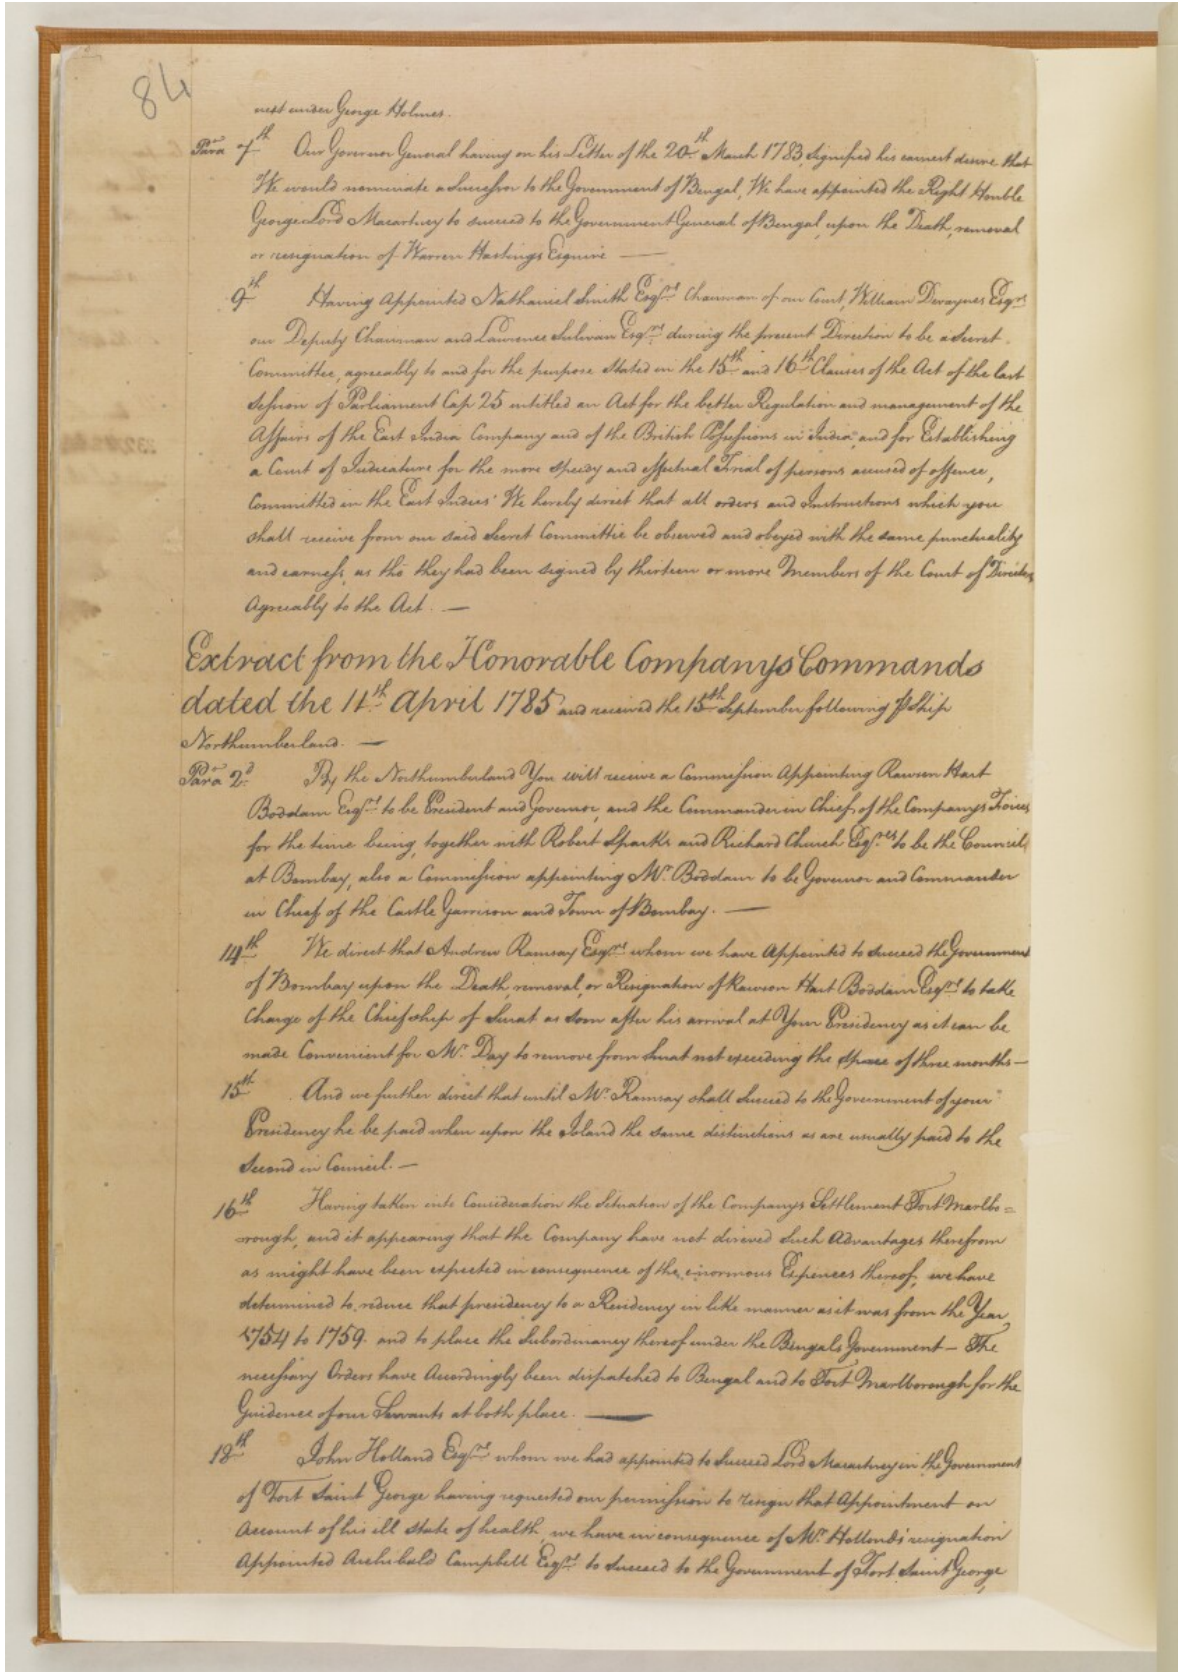 84
next under George Holmes.
Para 7th Our Governor General having on his Letter of the 20th March 1783, signified his earnest desire that
We would nominate a Successor to the Government of Bengal, We have appointed the Right Honble
George Lord Macartney to succeed to the Government General of Bengal, upon the Death, removal
or resignation of Warren Hastings Esquire —
9th Having Appointed Nathaniel Smith Esqre Chairman of our Court, William Devaynes Esqre
our Deputy Chairman and Laurence Sulivan Esqre during the present Direction to be a Secret
Committee, agreeably to and for the purpose Stated in the 15th and 16th Clauses of the Act of the last
Session of Parliament Cap 25 entitled an Act for the better Regulation and management of the
Affairs of the East India Company and of the British Possessions in India, and for Establishing
a Court of Judicature for the more speedy and effectual Trial of persons accused of offence,
Committed in the East Indies" We hereby direct that all orders and Instructions which you
shall receive from our said Secret Committie be observed and obeyed with the same punctuality
and earness, as tho they had been signed by thirteen or more Members of the Court of
Agreeably to the Act. —
Extract from the Honorable Companys Commands
dated the 11th April 1785 and received the 15th September following Ship
Northumberland. —
Para 2d By the Northumberland You will receive a Commission Appointing Rawson Hart
Boddam Esqre to be President and Governor, and the Commander in Chief of the Companys Forces
for the time being, together with Robert Sparks and Richard Church Esqres to be the Council
at Bombay, also a Commission appointing Mr Boddam to be Governor and Commander
in Chief of the Castle Garrison and Town of Bombay. —
14th We direct that Andrew Ramsay Esqre whom we have Appointed to succeed the Government
of Bombay upon the Death, removal, or Resignation of Rawson Hart Boddam Esqre to take
Charge of the Chiefship of Surat as soon after his arrival at Your Presidency as it can be
made Convenient for Mr Day to remove from Surat not exceeding the space of three months —
15th And we further direct that until Mr Ramsay shall Succeed to the Government of your
Presidency he be paid when upon the Island the same distinctions as are usually paid to the
Second in Council. —
16th Having taken into Consideration the Situation of the Companys Settlement Fort Marlbo=
rough, and it appearing that the Company have not direved Such Advantages therefrom
as might have been expected in consequence of the enormous Expences thereof, we have
determined to reduce that presidency to a Residency in like manner as it was from the Year
1754 to 1759. and to place the Subordinancy thereof under the Bengals Government — The
necessary Orders have Accordingly been dispatched to Bengal and to Fort Marlborough for the
Guidence of our Servants at both place. —
18th John Holland Esqre whom we had appointed to Succeed Lord Macartney in the Government
of Fort Saint George having requested our permission to resign that Appointment on
Account of his ill State of health, we have in consequence of Mr Hollonds' resignation
Appointed Archibald Campbell Esqre to succeed to the Government of Fort Saint George,